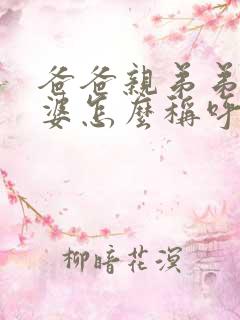 爸爸親弟弟
婆怎麼稱呼
柳暗花溟